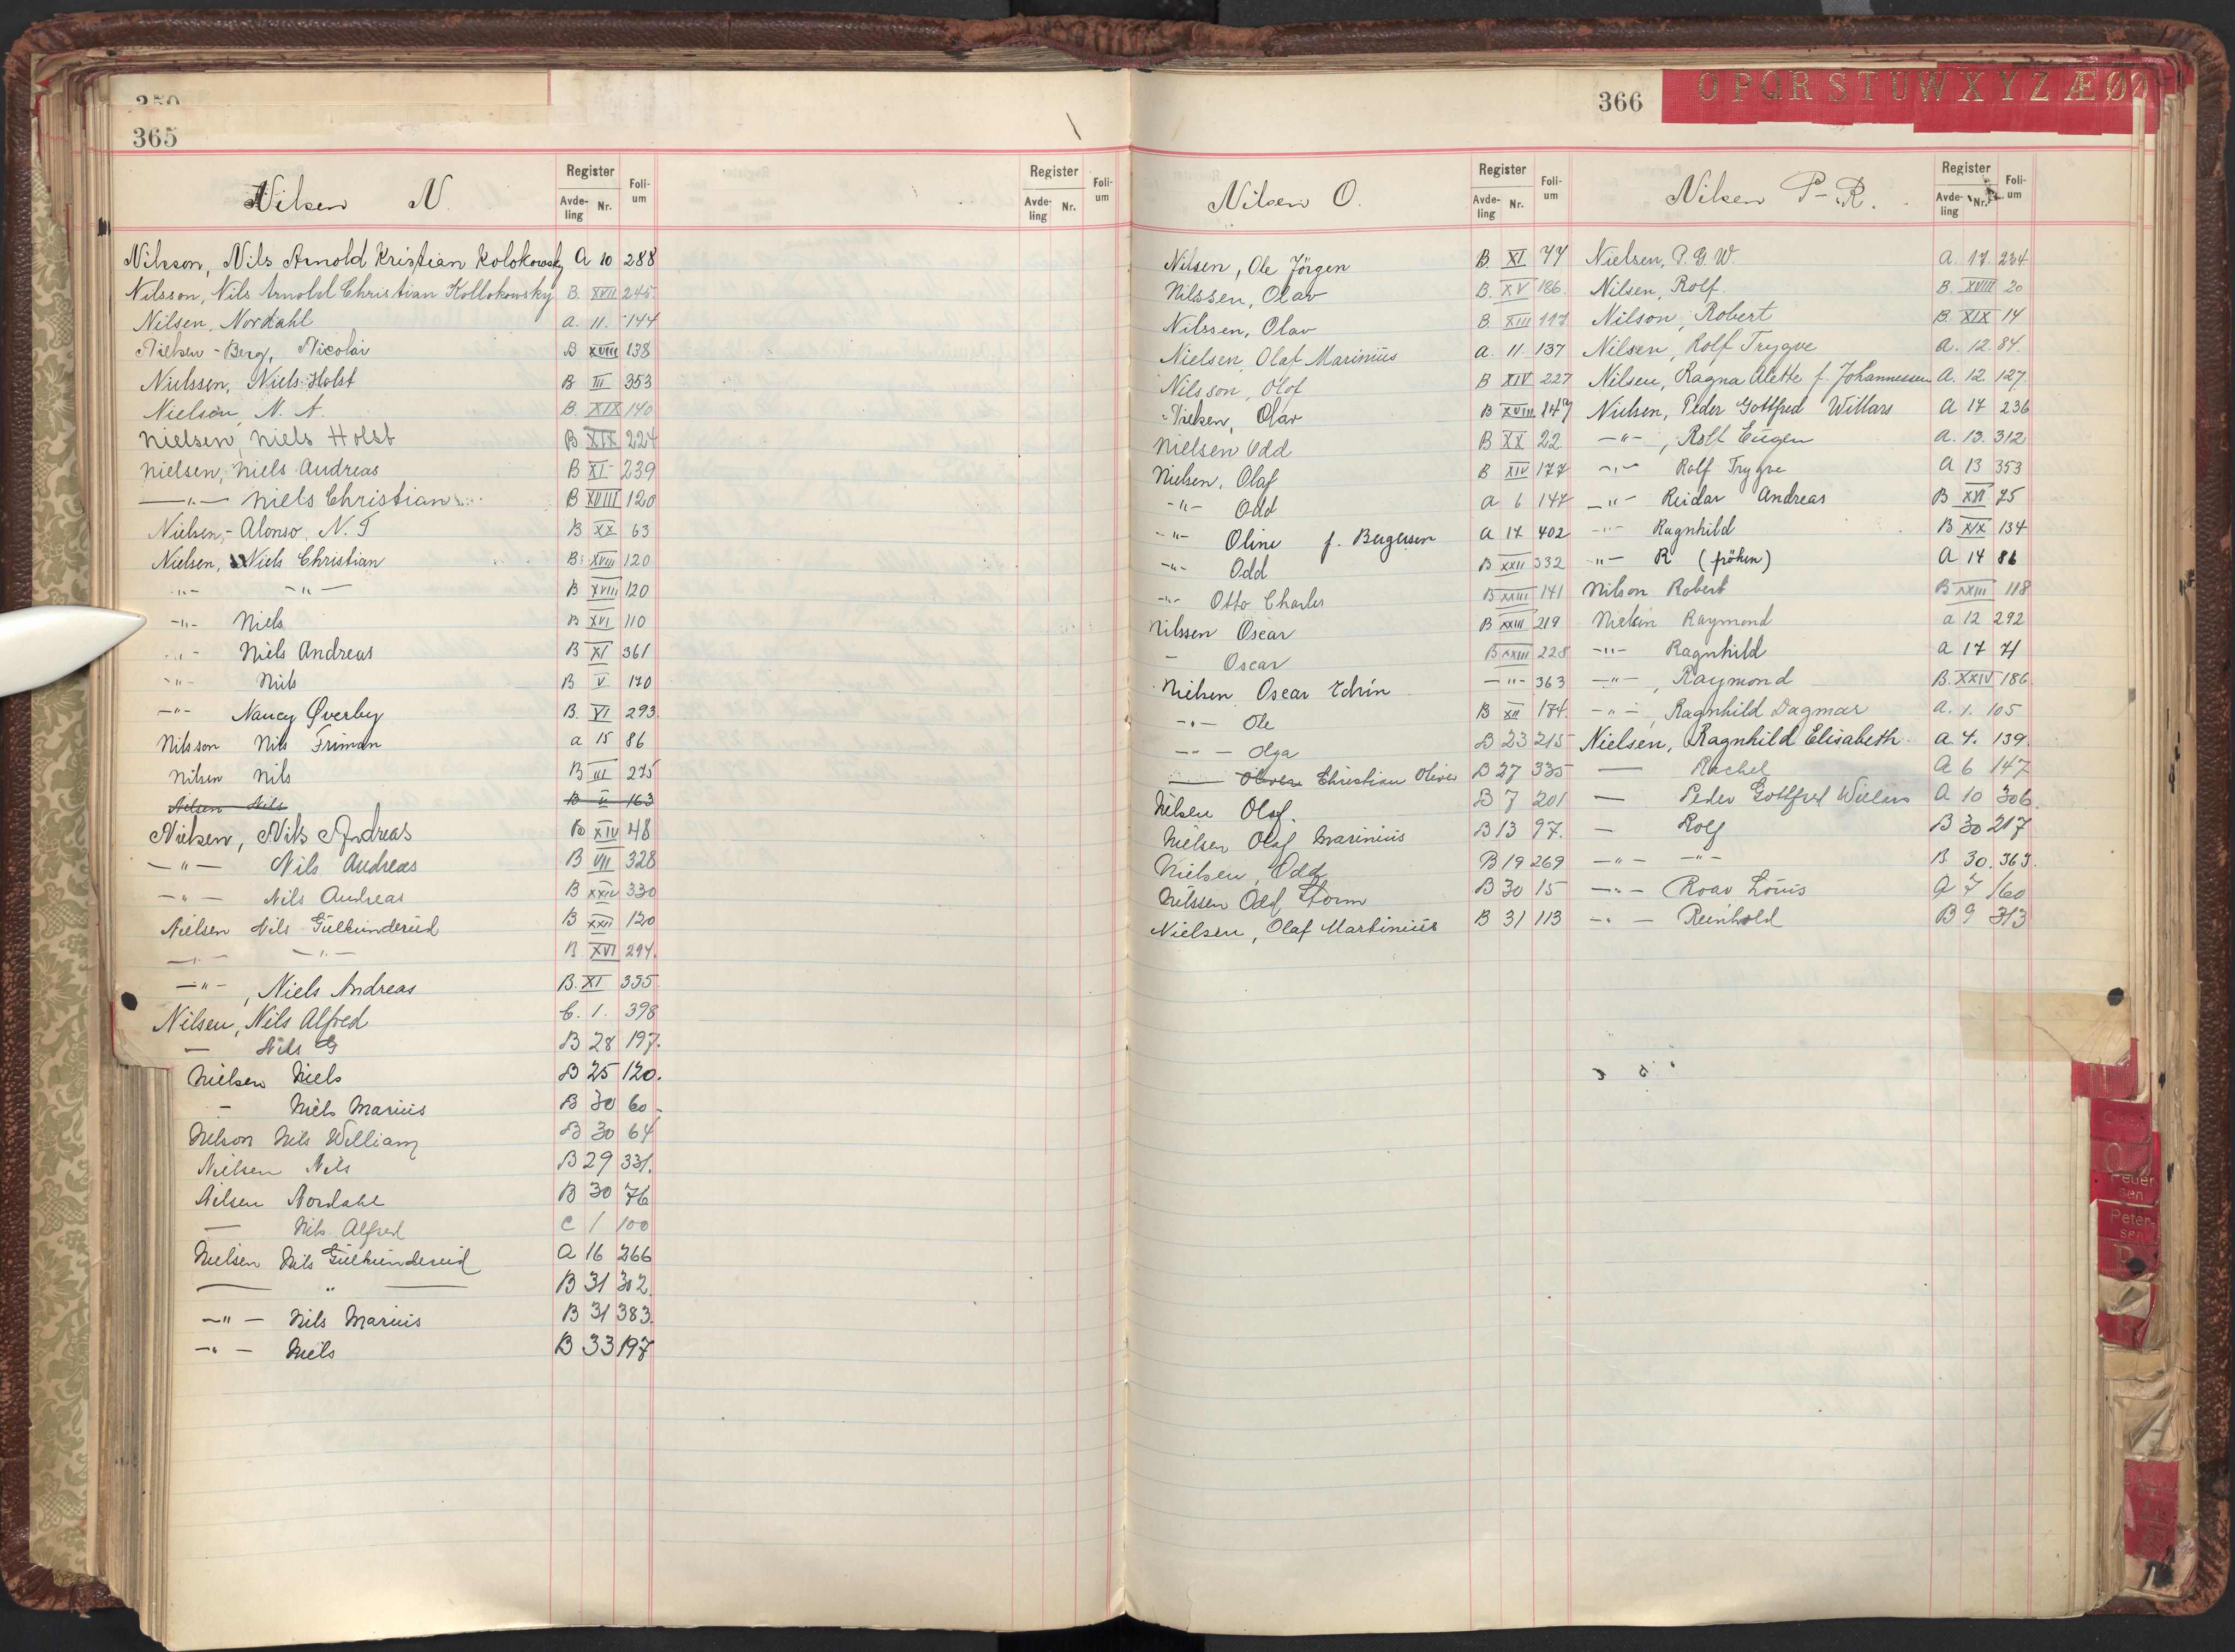 350
365
Nilsen N.
Register
Avde-ling Nr.
Foli-um
Register
Avde-ling Nr.
Foli-um
Nilsson, Nils Arnold Kristian Kolokowsky A 10 288
Nilsson, Nils Arnold Christian Kollokowsky B. XVII 245.
Nilsen, Nordahl a. 11. 144
Nielsen-Berg, Nicolai B XVIII 138
Nielssen, Niels Holst B III 353
Nielsen, N. A. B. XIX 140
Nielsen, Niels Holst B XIX 224
Nielsen, Niels Andreas B XI 239
—"— Niels Christian B XVIII 120
Nielsen,- Alonso, N. T B XX 63
Nielsen, Niels Christian B. XVIII 120
-"- -"- B XVIII 120
-"- Niels B XVI 110
-"- Niels Andreas B XI 361
-"- Nils B V 170
-"- Nancy Øverby B. VI 293.
Nilsson Nils Friman a 15 86
Nilsen Nils B III 275
Nilsen Nils B II 163
Nielsen, Nils Andreas B XIV 48
—"— Nils Andreas B VII 328
-"- Nils Andreas B XXIV 330
Nielsen Nils Gulkunderud B XXII 120
—"— —"— B XVI 294.
—"—, Niels Andreas B. XI 355.
Nilsen, Nils Alfred C. 1. 398
— Nils G B 28 197.
Nielsen Niels B 25 120.
— Niels Marius B 30 60
Nelson Nils William B 30 64
Nielsen Nils B 29 331.
Nilsen Nordahl B 30 76
— Nils Alfred C 1 100
Nielsen Nils Gulkunderud A 16 266
— " — B 31 302
—"— Nils Marius B 31 383.
—"— Niels B 33 197
366
O P Q R S T U W X Y Z Æ Ø
Nilsen O.
Register
Avde-ling Nr.
Foli-um
Nilsen, Ole Jörgen B. XI 77
Nilssen, Olav B. XV 186.
Nilssen, Olav B. XIII 117
Nielsen, Olaf Marinius A. 11. 137
Nilsson, Olof B XIV 227
Nielsen, Olav B XVIII 147
Nielsen Odd B XX 22
Nielsen, Olaf B XIV 177
-"- Odd a 6 147
-"- Oline f. Bergersen A 17 402
-"- Odd B XXII 332
-"- Otto Charles B XXIII 141
Nilssen Oscar B XXIII 219
- Oscar B XXIII 228
Nielsen Oscar Edvin —"— 363
-"- Ole B XII 174.
-"- Olga B 23 215
— Oliver Christian Oliver B 27 335
Nilsen Olaf. B 7 201
Nielsen Olaf Marinius B 13 97.
Nielsen, Odd B 19 269
Nilssen Odd Storm B 30 15
Nielsen, Olaf Martinius B 31 113
Nilsen P-R.
Register
Avde-ling Nr.
Foli-um
Nielsen, P. G. W. A. 17. 234
Nilsen, Rolf. B. XVIII 20
Nilson, Robert B. XIX 14
Nilsen, Rolf Trygve A. 12. 84.
Nilsen, Ragna Alette f. Johannessen A. 12. 127
Nielsen, Peder Gottfred Willars A 17 236
—"—, Rolf Eugen A. 13. 312
-"- Rolf Trygve A 13 353
-"- Reidar Andreas B XVI 75
-"- Ragnhild B XIX 134
-"- R (fröken) A 14 86
Nilson Robert B XXIII 118
Nielsen Raymond a 12 292
-"- Ragnhild a 17 71
—"—, Raymond B. XXIV 186
-"-, Ragnhild Dagmar A. 1. 105
Nielsen, Ragnhild Elisabeth. A. 4. 139.
— Rachel A 6 147
— Peder Gottfred Willars A 10 306.
— Rolf B 30 217
—"— —"— B 30. 363.
—"— Roar Louis A 7 160
—"— Reinhold B 9 313
Peder
sen
Peter-
sen
P